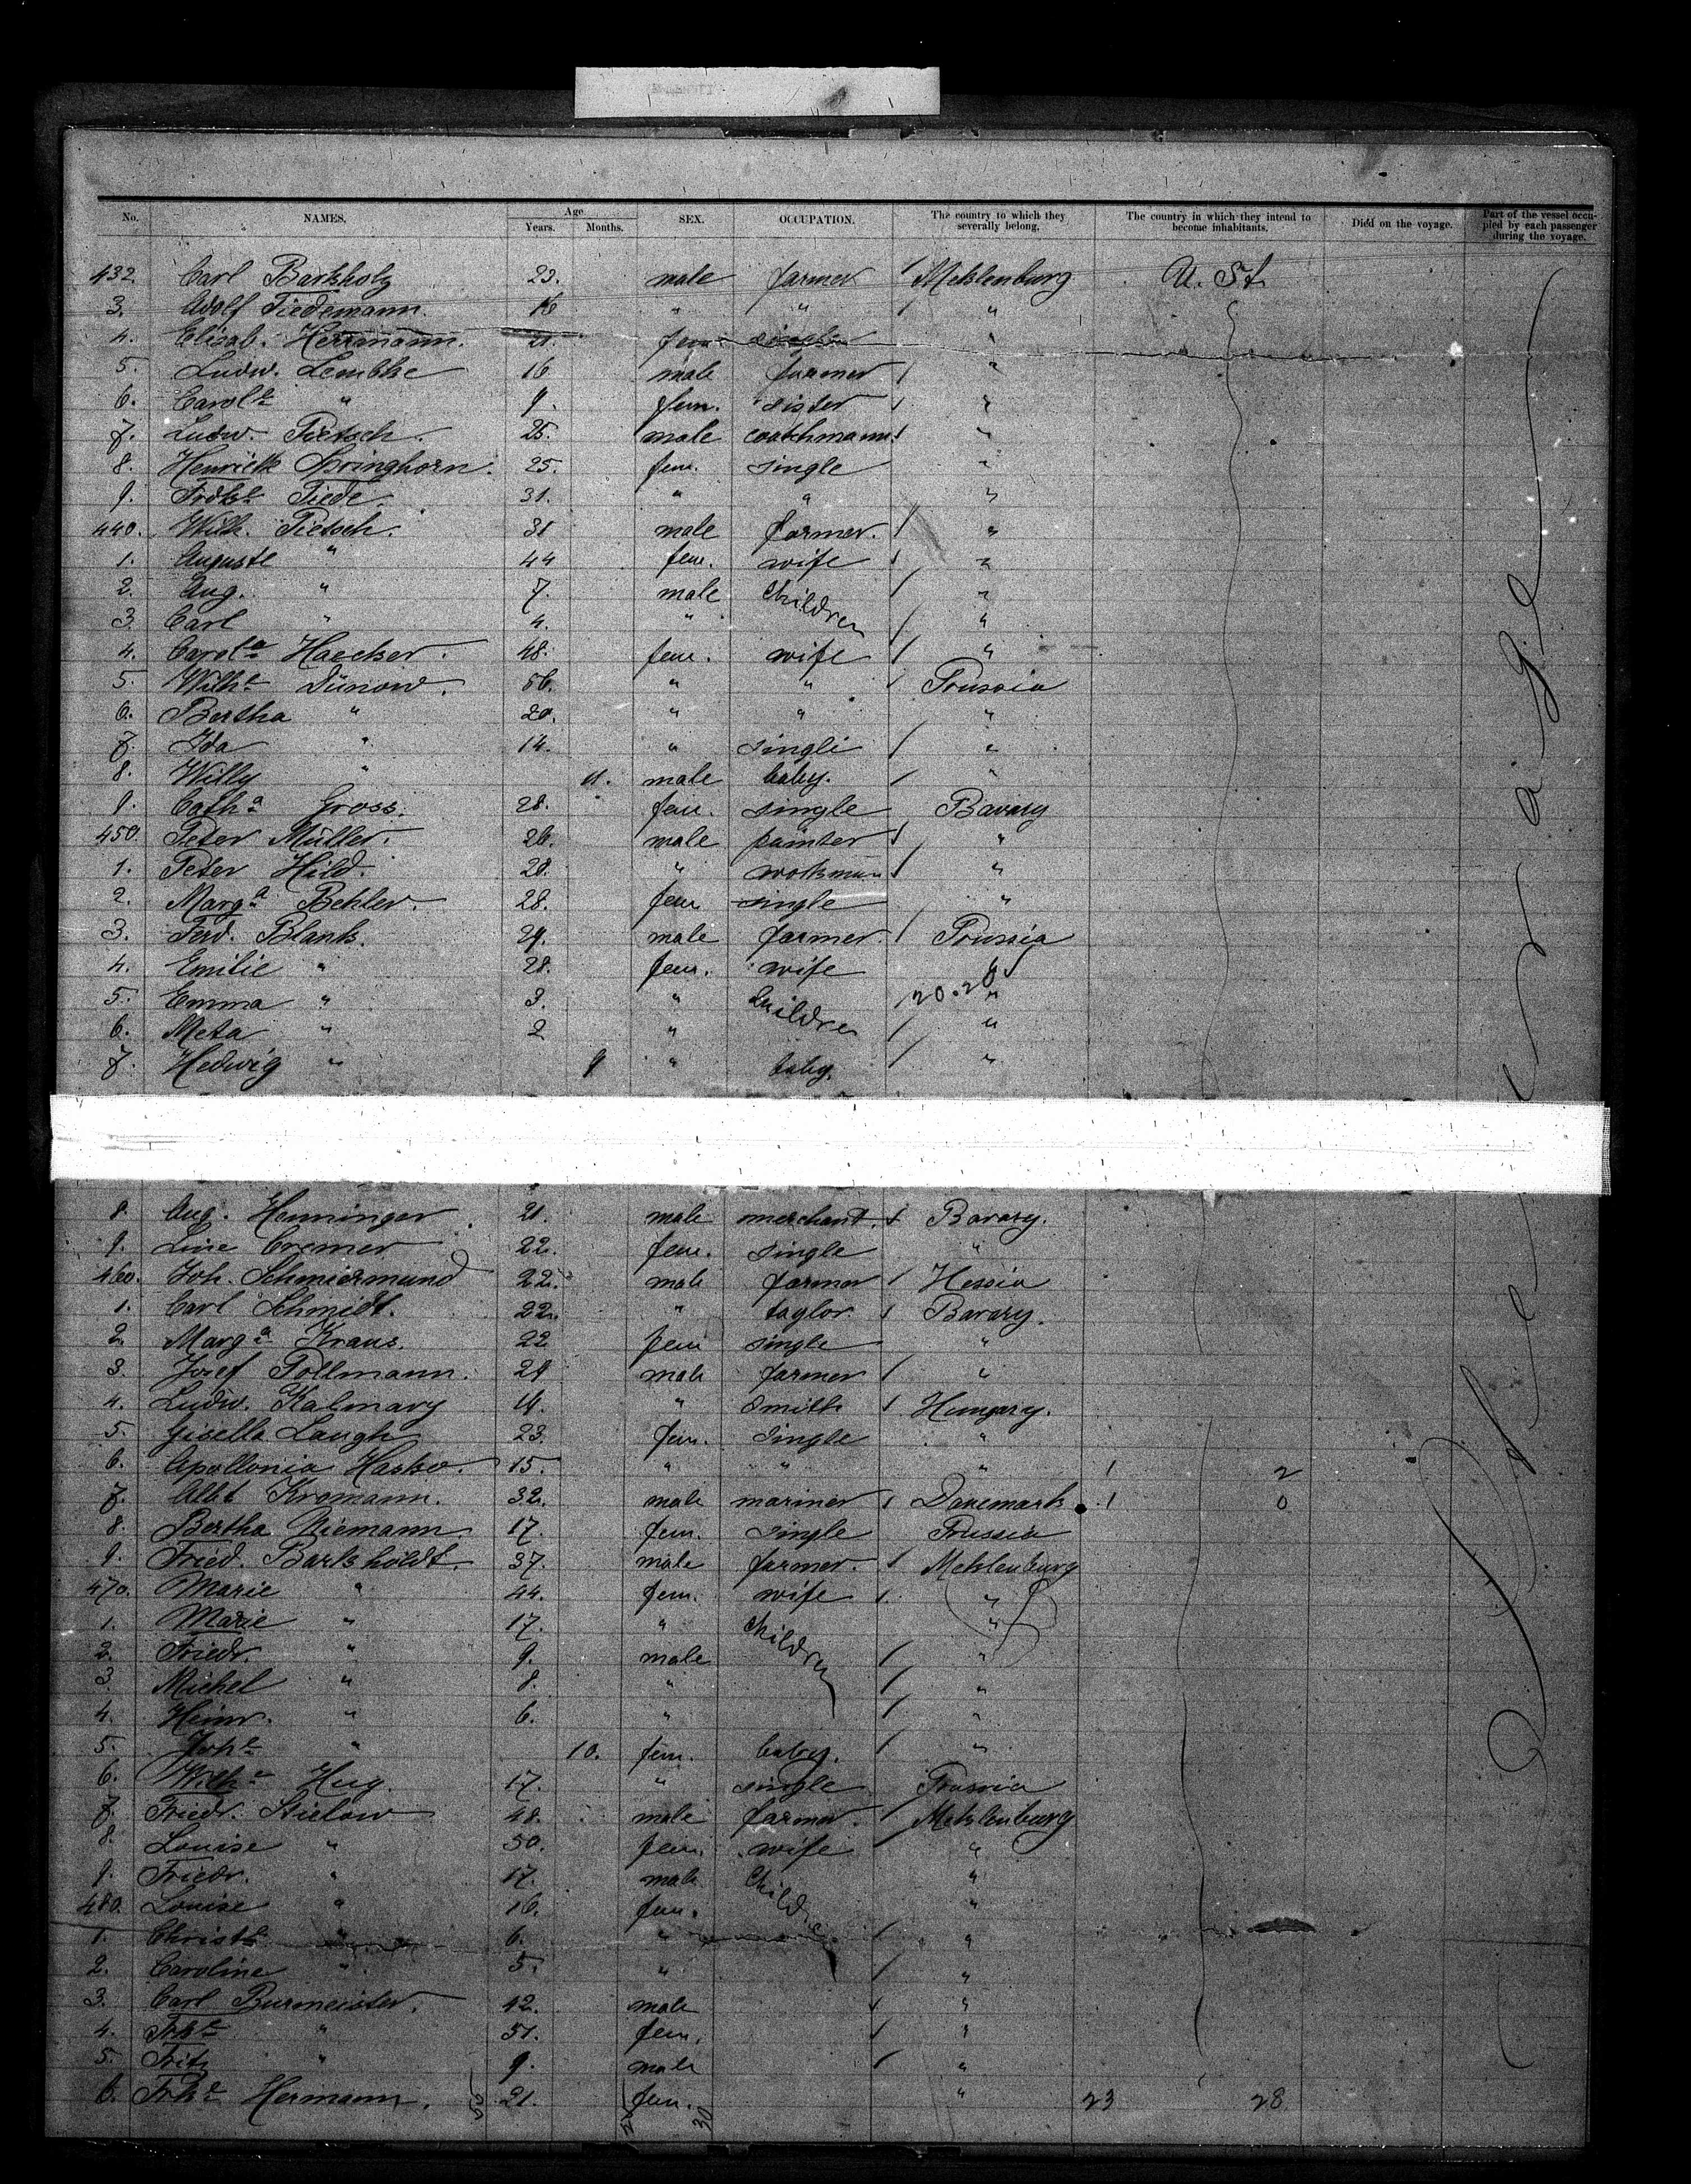 No. NAMES. Age Years. Months. SEX. OCCUPATION. The country to which they severally belong. The country in which they intend to become inhabitants. Died on the voyage. Part of the vessel occupied by each passenger during the voyage.
432. Carl Barkholz 23. male farmer Meklenburg U. St.
3. Adolf Tiedemann. 16 " " "
4. Elisab. Herrmann. 21. fem single "
5. Ludw. Lembke 16 male farmer "
6. Carolᵉ " 9. fem. sister "
7. Ludw. Pietsch. 25. male coatchmann "
8. Henriette Springhorn. 25. fem. single "
9. Frdkᵉ Tiede. 31. " " "
440. Wilh. Pietsch. 31 male farmer. "
1. Auguste " 44 fem. wife "
2. Aug. " 7. male Children "
3. Carl " 4. " "
4. Carolᵃ Haecker. 48. fem. wife "
5. Wilhᵉ Dünow. 56. " " Prussia
6. Bertha " 20. " " "
7. Ida " 14. " single "
8. Willy " 11. male baby. "
9. Cathᵃ Gross. 28. fem. single Bavary
450. Peter Müller. 26. male painter "
1. Peter Hild. 28. " workman "
2. Margᵃ Behler. 28. fem single "
3. Ferd. Blank. 29. male farmer. Prussia
4. Emilie " 28. fem. wife "
5. Emma " 3. " Children 20.20 "
6. Meta " 2 " "
7. Hedwig " 9 " baby. "
8. Aug. Henninger. 21. male merchant. Bavary.
9. Line Cremer 22. fem. single "
460. Joh. Schmiermund 22. male farmer Hessia
1. Carl Schmidt. 22. " taylor. Bavary.
2. Margᵃ Kraus. 22 fem single "
3. Josef Pollmann. 21 male farmer "
4. Ludw. Kalmary " Smith Hungary.
5. Gisella Laugh 23. fem. single "
6. Apollonia Hasko. 15. " " " 1 2
7. Albt Kromann. 32. male mariner Danemark. 1 0
8. Bertha Niemann. 17. fem. single Prussia
9. Fried. Barksholdt. 37. male farmer. Meklenburg
470. Marie " 44. fem. wife "
1. Marie " 17. " Children "
2. Friedr. " 9. male "
3. Michel " 8. " "
4. Heinr. " 6. " "
5. Johᵉ " 10. fem. baby. "
6. Wilhᵉ Hug. 17. " single Prussia
7. Friedr. Stielow 48. male farmer. Meklenburg
8. Louise " 50. fem. wife "
9. Friedr. " 17. male Children "
480. Louise " 16. fem. "
1. Christᵉ " 6. " "
2. Caroline " 5. " "
3. Carl Burmeister. 42. male "
4. Frkᵉ " 51. fem. "
5. Fritz " 9. male "
6. Frkᵉ Hermann. 21. fem. " 23 28
30